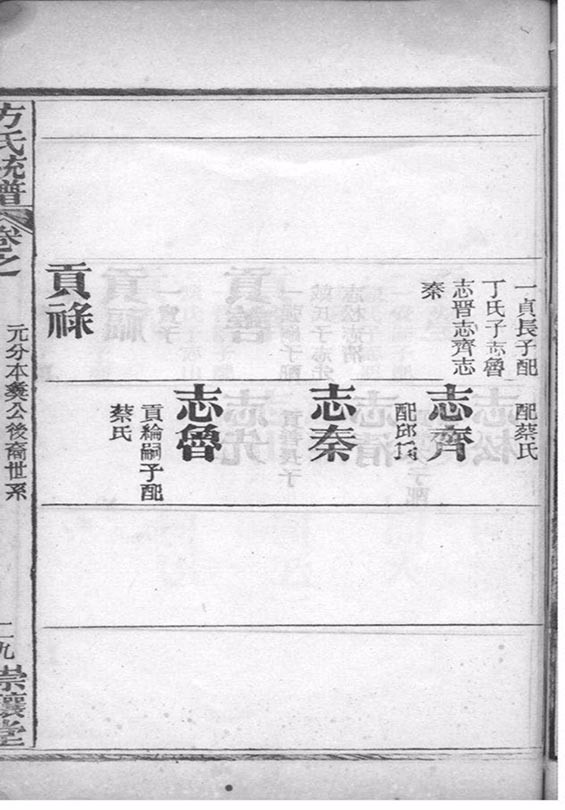 一貞長子配
丁氏子志魯
志晋志齊志
秦
貢祿
配蔡氏
志齊
配邱氏
志秦
志魯
貢綸嗣子配
蔡氏
方氏統譜
卷之
元分本公後裔世系
二九
崇讓堂